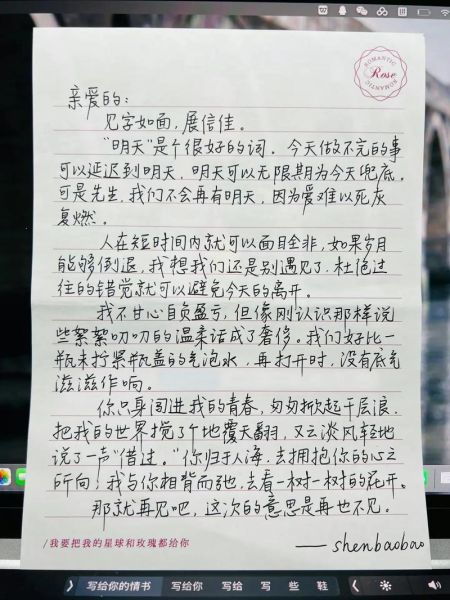 ROMANTIC
Rose
ROMANTIC
亲爱的：
见字如面，展信佳。
“明天”是个很好的词。今天做不完的事
可以延迟到明天，明天可以无限期为今天兜底。
可是先生，我们不会再有明天，因为爱难以死灰
复燃。
人在短时间内就可以面目全非，如果岁月
能够倒退，我想我们还是别遇见了，杜绝过
往的错觉就可以避免今天的离开。
我不甘心自负盈亏，但像刚认识那样说
些絮絮叨叨的温柔话成了奢侈。我们好比一
瓶未拧紧瓶盖的气泡水，再打开时，没有底气
滋滋作响。
你只身闯进我的青春，匆匆掀起千层浪，
把我的世界搅了个地覆天翻，又云淡风轻地
说了一声“借过。”你归于人海，去拥抱你的心之
所向，我与你相背而弛，去看一树一树的花开。
那就再见吧，这次的意思是再也不见。
/我要把我的星球和玫瑰都给你
——shenbaobao
写给你的情书 写给你 写给 写 些 鞋